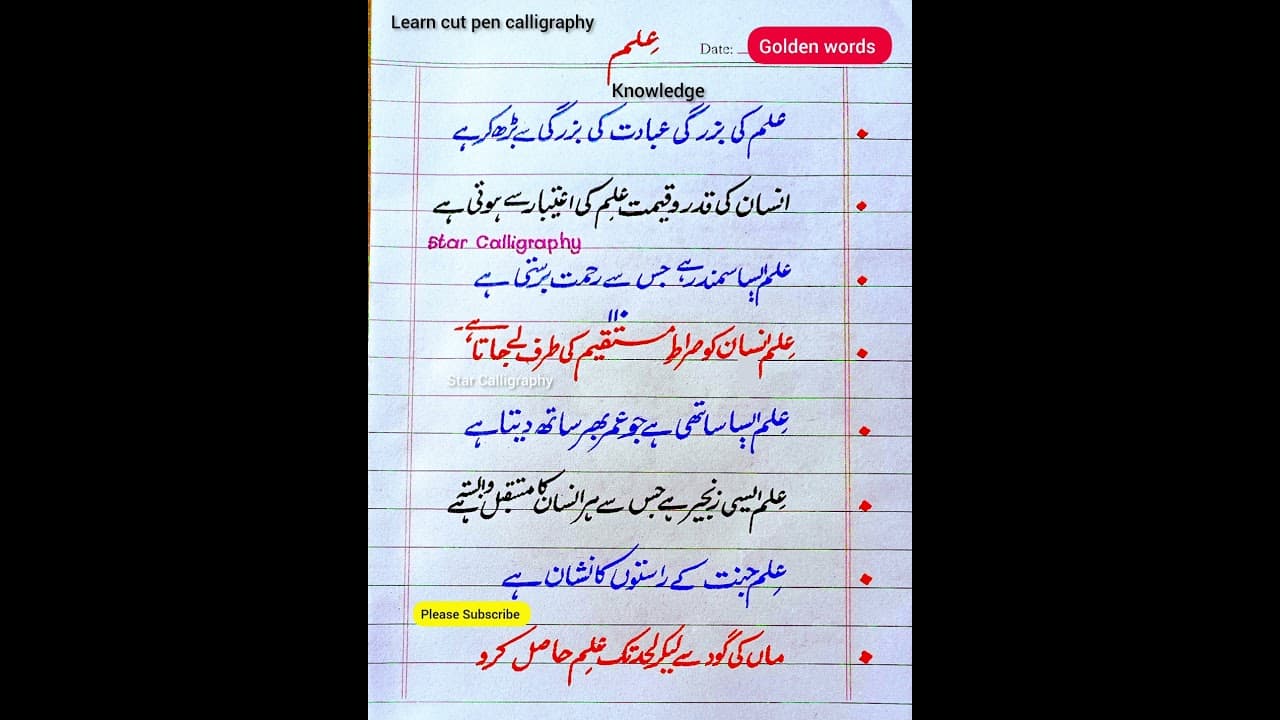 Learn cut pen calligraphy
عِلم
Date:
Golden words
Knowledge
علم کی بزرگی عبادت کی بزرگی سے بڑھ کر ہے
انسان کی قدر و قیمت عِلم کی اعتبار سے ہوتی ہے
Star Calligraphy
علم ایسا سمندر ہے جس سے رحمت برستی ہے
عِلم انسان کو صراطِ مستقیم کی طرف لے جاتا ہے۔
Star Calligraphy
عِلم ایسا ساتھی ہے جو عمر بھر ساتھ دیتا ہے
عِلم ایسی زنجیر ہے جس سے ہر انسان کا مستقبل وابستہ ہے
عِلم جنت کے راستوں کا نشان ہے
Please Subscribe
ماں کی گود سے لیکر لحد تک عِلم حاصل کرو